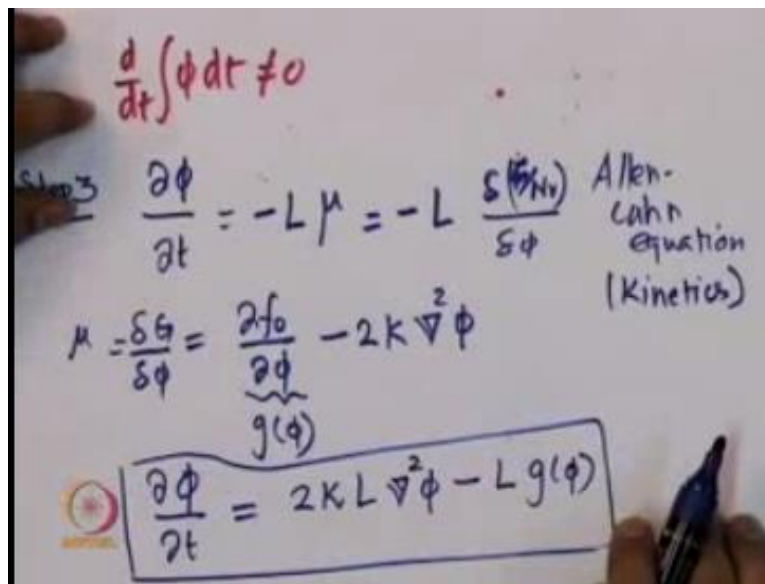 d/dt ∫ϕ dτ ≠ 0
Step 3 ∂ϕ/∂t = -L μ = -L δ( /Nv)/δϕ Allen-
Cahn
equation
(Kinetics)
μ = δG/δϕ = ∂f₀/∂ϕ - 2K ∇²ϕ
g(ϕ)
∂ϕ/∂t = 2KL ∇²ϕ - L g(ϕ)